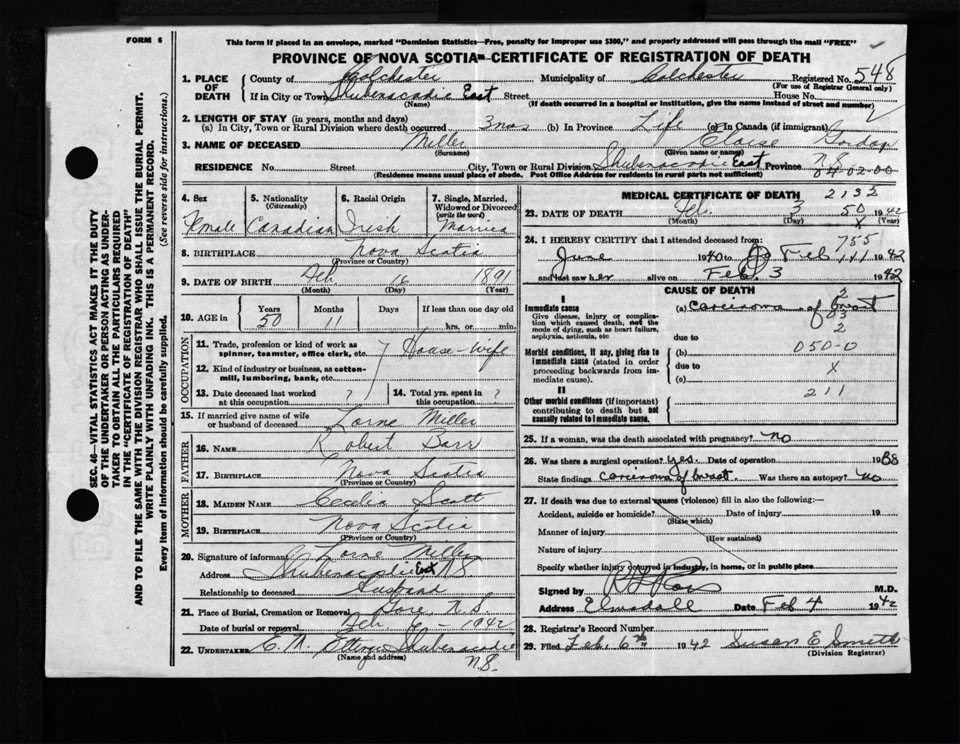 FORM 6
This form if placed in an envelope, marked "Dominion Statistics—Free, penalty for improper use $300," and properly addressed will pass through the mail "FREE"
PROVINCE OF NOVA SCOTIA—CERTIFICATE OF REGISTRATION OF DEATH
1. PLACE OF DEATH County of Colchester Municipality of Colchester Registered No. 548
(For use of Registrar General only)
If in City or Town Shubenacadie East Street House No.
(Name) (If death occurred in a hospital or institution, give the name instead of street and number)
2. LENGTH OF STAY (in years, months and days)
(a) In City, Town or Rural Division where death occurred 3 mos (b) In Province Life (c) In Canada (if immigrant)
3. NAME OF DECEASED Miller
(Surname) (Given name or names)
RESIDENCE No. Street City, Town or Rural Division Shubenacadie East Province N.S.
(Residence means usual place of abode. Post Office Address for residents in rural parts not sufficient) 04-02-00
4. Sex 5. Nationality (Citizenship) 6. Racial Origin 7. Single, Married, Widowed or Divorced (write the word)
Female Canadian Irish Married
8. BIRTHPLACE Nova Scotia
(Province or Country)
9. DATE OF BIRTH 1891
(Month) (Day) (Year)
10. AGE in Years Months Days If less than one day old
50 11 hrs. or min.
OCCUPATION
11. Trade, profession or kind of work as spinner, teamster, office clerk, etc. House-wife
12. Kind of industry or business, as cotton-mill, lumbering, bank, etc.
13. Date deceased last worked at this occupation ? 14. Total yrs. spent in this occupation ?
15. If married give name of wife or husband of deceased Lorne Miller
FATHER
16. NAME Robert
17. BIRTHPLACE Nova Scotia
(Province or Country)
MOTHER
18. MAIDEN NAME Cecelia Scott
19. BIRTHPLACE Nova Scotia
(Province or Country)
20. Signature of informant Lorne Miller
Address Shubenacadie East, N.S
Relationship to deceased Husband
21. Place of Burial, Cremation or Removal N.S.
Date of burial or removal 6 - 1942
22. UNDERTAKER Shubenacadie
(Name and address) N.S.
MEDICAL CERTIFICATE OF DEATH 2132
23. DATE OF DEATH Feb. 3 50 1942
(Month) (Day) X
24. I HEREBY CERTIFY that I attended deceased from: 755
June 1940 to Feb 1942
and last saw her alive on Feb. 3 1942
CAUSE OF DEATH
I
Immediate cause
Give disease, injury or complication which caused death, not the mode of dying, such as heart failure, asphyxia, asthenia, etc
(a) carcinoma of breast
due to
Morbid conditions, if any, giving rise to immediate cause (stated in order proceeding backwards from immediate cause).
(b) 050-0
due to X
(c)
II
Other morbid conditions (if important) contributing to death but not causally related to immediate cause. 211
25. If a woman, was the death associated with pregnancy? no
26. Was there a surgical operation? yes. Date of operation 1938
State findings carcinoma of breast. Was there an autopsy? no
27. If death was due to external causes (violence) fill in also the following:—
Accident, suicide or homicide? Date of injury 19
(State which)
Manner of injury
(How sustained)
Nature of injury
Specify whether injury occurred in industry, in home, or in public place
Signed by M.D.
Address Elmsdale Date Feb 4 1942
28. Registrar's Record Number
29. Filed Feb. 6th 1942 Susan E. Smith
(Division Registrar)
SEC. 46—VITAL STATISTICS ACT MAKES IT THE DUTY
OF THE UNDERTAKER OR PERSON ACTING AS UNDER-
TAKER TO OBTAIN ALL THE PARTICULARS REQUIRED
IN THE "CERTIFICATE OF REGISTRATION OF DEATH"
AND TO FILE THE SAME WITH THE DIVISION REGISTRAR WHO SHALL ISSUE THE BURIAL PERMIT.
WRITE PLAINLY WITH UNFADING INK. THIS IS A PERMANENT RECORD.
Every item of information should be carefully supplied. (See reverse side for instructions.)